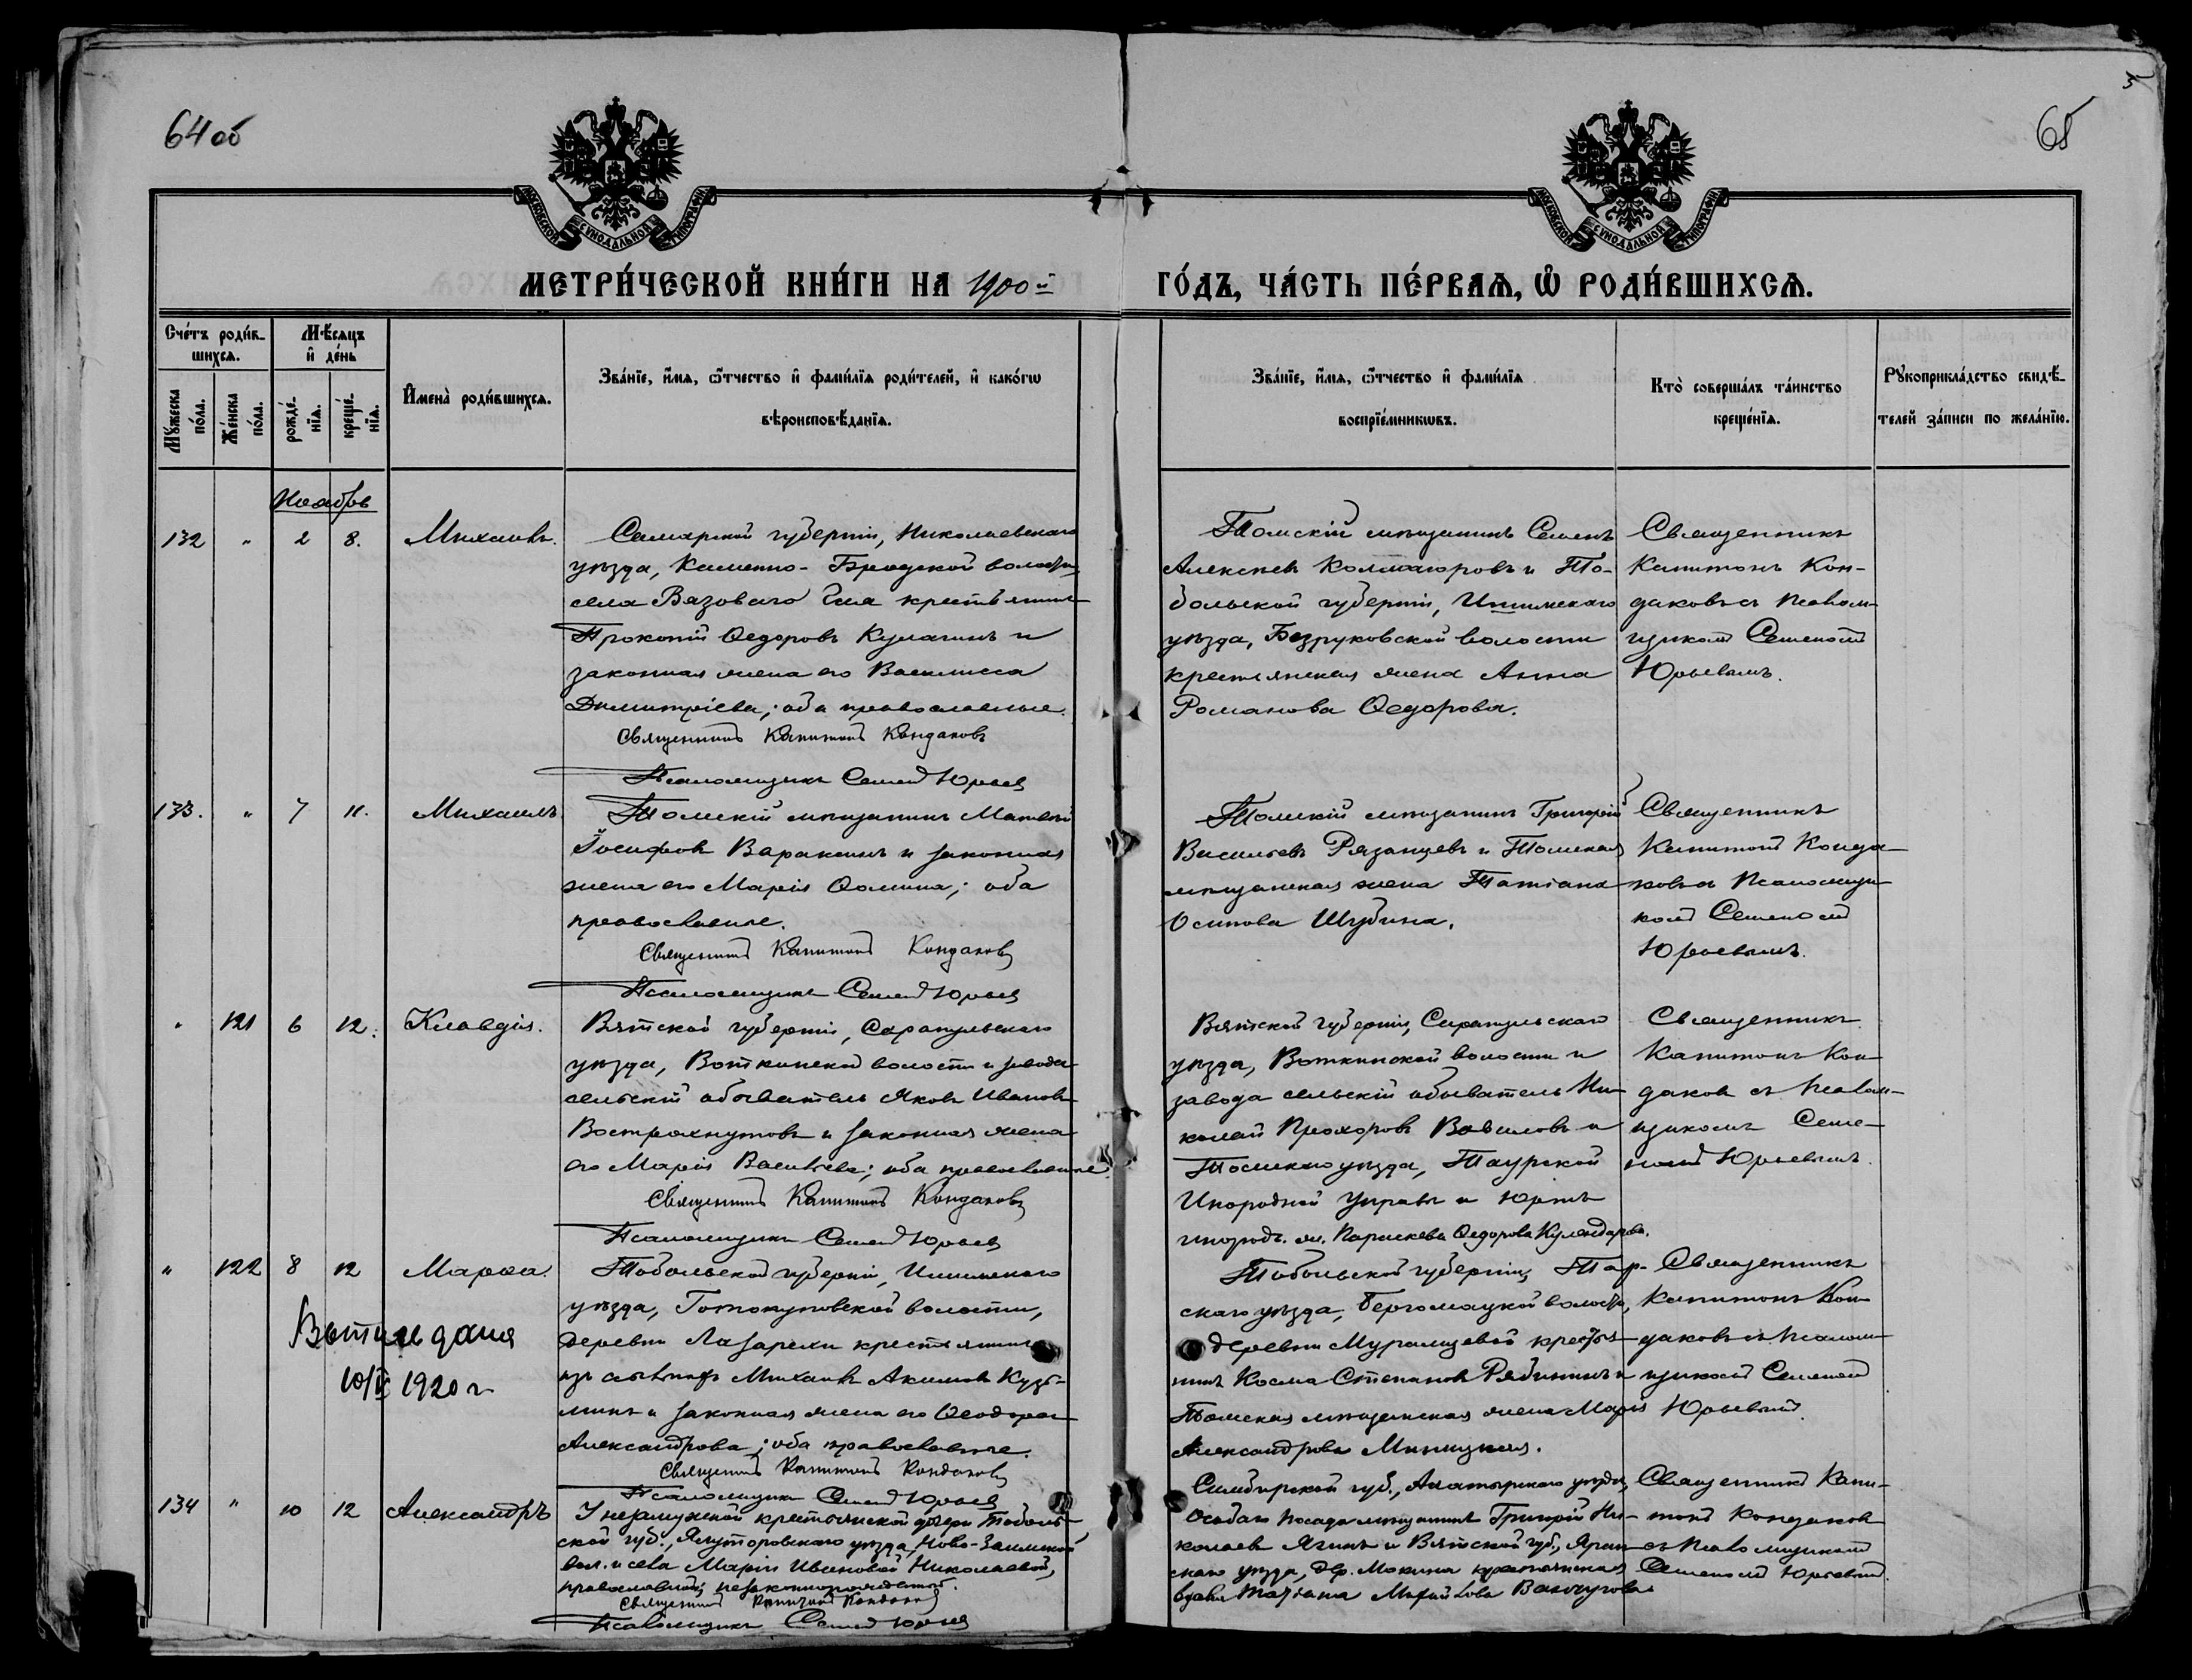 64 об
65
МОСКОВСКОЙ СѴНОДАЛЬНОЙ ТИПОГРАФІИ
МОСКОВСКОЙ СѴНОДАЛЬНОЙ ТИПОГРАФІИ
МЕТРИ́ЧЕСКОЙ КНИ́ГИ НА 1900й
ГО́ДЪ, ЧА́СТЬ ПЕ́РВАѦ, Ѡ РОДИ́ВШИХСѦ.
Сче́тъ роди́в-
шихсѧ.
Мѣ́сѧцъ
и де́нь
Мꙋ́жеска
по́ла.
Же́нска
по́ла.
рожде́-
нїѧ.
креще́-
нїѧ.
Имена̀ роди́вшихсѧ.
Зва́нїе, и́мѧ, ѻ́тчество и фами́лїѧ роди́телей, и како́гѡ
вѣроисповѣ́данїѧ.
Зва́нїе, и́мѧ, ѻ́тчество и фами́лїѧ
воспрїе́мникѡвъ.
Кто̀ соверша́лъ та́инство
креще́нїѧ.
Рꙋкоприкла́дство свидѣ́-
телей за́писи по жела́нїю.
Ноябрь
132 " 2 8. Михаилъ.
Самарской губерніи, Николаевскаго
уѣзда, Каменно-Бродской волости,
села Вязоваго Гая крестьянинъ
Прокопій Ѳедоровъ Кулагинъ и
законная жена его Василисса
Димитріева; оба православные.
Священникъ Капитонъ Кондаковъ
Псаломщикъ Семенъ Юрьевъ
Томскій мѣщанинъ Семенъ
Алексѣевъ Колмогоровъ и То-
больской губерніи, Ишимскаго
уѣзда, Безруковской волости
крестьянская жена Анна
Романова Ѳедорова.
Священникъ
Капитонъ Кон-
даковъ съ псалом-
щикомъ Семеномъ
Юрьевымъ.
133. " 7 11. Михаилъ
Томскій мѣщанинъ Матвѣй
Іосифовъ Варакинъ и законная
жена его Марія Ѳомина; оба
православные.
Священникъ Капитонъ Кондаковъ
Псаломщикъ Семенъ Юрьевъ
Томскій мѣщанинъ Григорій
Васильевъ Рязанцевъ и Томская
мѣщанская жена Татіана
Осипова Шубина.
Священникъ
Капитонъ Конда-
ковъ съ псаломщи-
комъ Семеномъ
Юрьевымъ.
" 121 6 12. Клавдія.
Вятской губерніи, Сарапульскаго
уѣзда, Воткинской волости и завода
сельскій обыватель Яковъ Ивановъ
Вострокнутовъ и законная жена
его Марія Васильева; оба православные
Священникъ Капитонъ Кондаковъ
Псаломщикъ Семенъ Юрьевъ
Вятской губерніи, Сарапульскаго
уѣзда, Воткинской волости и
завода сельскій обыватель Ни-
колай Прохоровъ Вавиловъ и
Томскаго уѣзда, Таурской
Инородной Управы и юртъ
инородч. ж. Параскева Ѳедорова
Священникъ
Капитонъ Кон-
даковъ съ псалом-
щикомъ Семе-
номъ Юрьевымъ.
" 122 8 12 Марѳа.
Выпись дана
10/II 1920 г
Тобольской губерніи, Ишимскаго
уѣзда, Готопутовской волости,
деревни Лазаревки крестьянинъ
изъ ссыльныхъ Михаилъ Акимовъ Кузь-
минъ и законная жена его Ѳеодора
Александрова; оба православные.
Священникъ Капитонъ Кондаковъ
Псаломщикъ Семенъ Юрьевъ
Тобольской губерніи, Тар-
скаго уѣзда, Бергамацкой волости,
деревни Мурашевой кресть-
нинъ Косма Степановъ Рябининъ и
Томская мѣщанская жена Марія
Александрова
Священникъ
Капитонъ Кон-
даковъ съ псалом-
щикомъ Семеномъ
Юрьевымъ.
134 " 10 12 Александръ
У незамужней крестьянской дочери Тоболь-
ской губ., Ялуторовскаго уѣзда, Ново-Заимской
вол. и села Маріи Ивановой Николаевой,
православной; незаконнорожденный.
Священникъ Капитонъ Кондаковъ
Псаломщикъ Семенъ Юрьевъ
Симбирской губ., Алатырскаго уѣзда,
посада мѣщанинъ Григорій Ни-
колаевъ Ягинъ и Вятской губ., Яран-
скаго уѣзда, дер. Мокина крестьянская
вдова Татіана Михайлова
Священникъ Капи-
тонъ Кондаковъ
съ псаломщикомъ
Семеномъ Юрьевымъ.